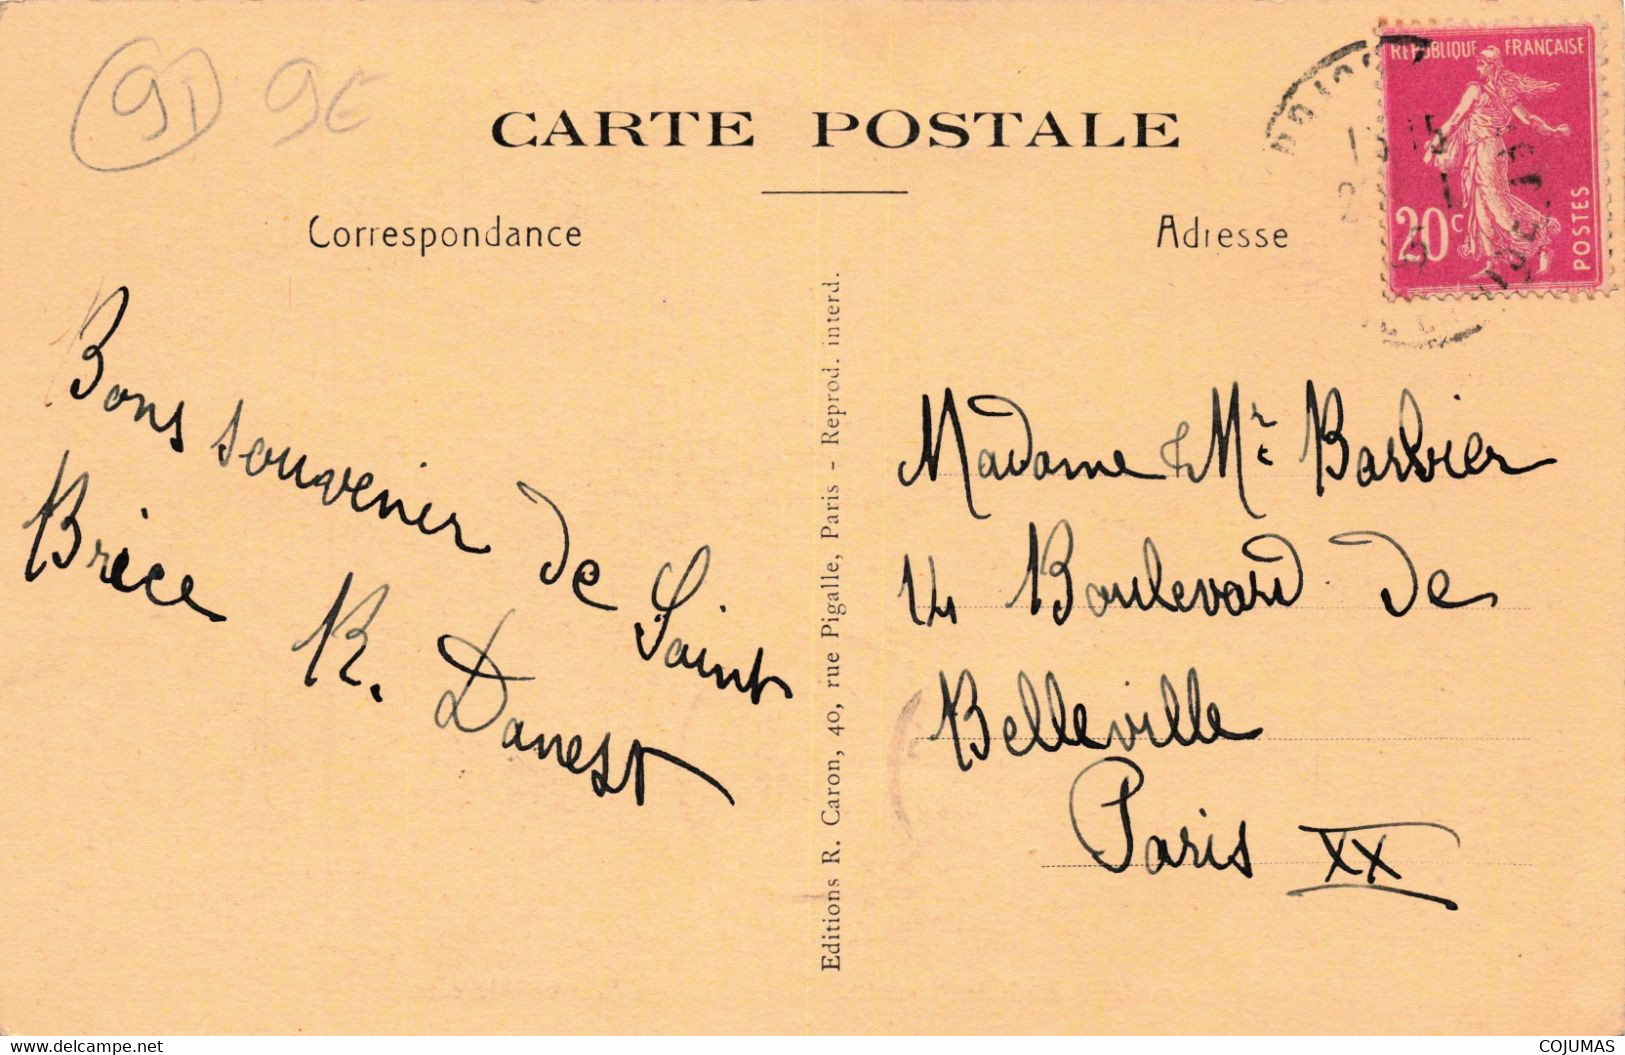 91 9€
CARTE POSTALE
Correspondance
Adresse
RÉPUBLIQUE FRANÇAISE
20c
POSTES
15
Bons souvenir de Saint
Brice R. Danest
Editions R. Caron, 40, rue Pigalle, Paris - Reprod. interd.
Madame & Mr Barbier
14 Boulevard de
Belleville
Paris XX
www.delcampe.net
COJUMAS